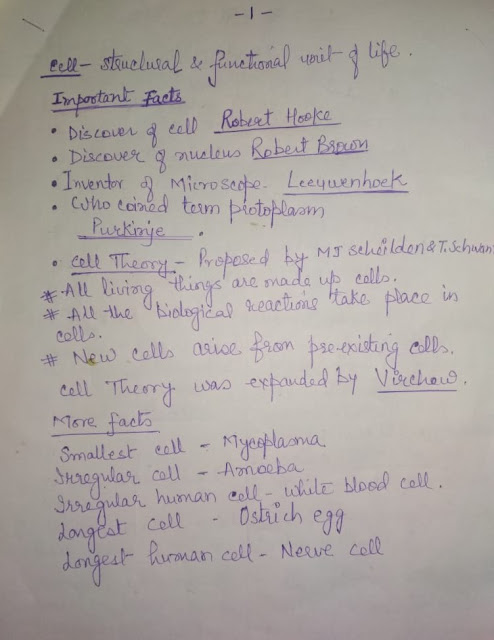 -1-
Cell - structural & functional unit of life.
Important Facts
• Discover of cell Robert Hooke
• Discover of nucleus Robert Brown
• Inventor of Microscope - Leeuwenhoek
• Who coined term protoplasm
Purkinje.
• Cell Theory - Proposed by MJ Scheilden & T. Schwan
# All living things are made up cells.
# All the biological reactions take place in
cells.
# New cells arise from pre-existing cells.
Cell Theory was expanded by Virchow.
More facts
Smallest cell - Mycoplasma
Irregular cell - Amoeba
Irregular human cell - white blood cell.
Longest cell - Ostrich egg
Longest human cell - Nerve cell